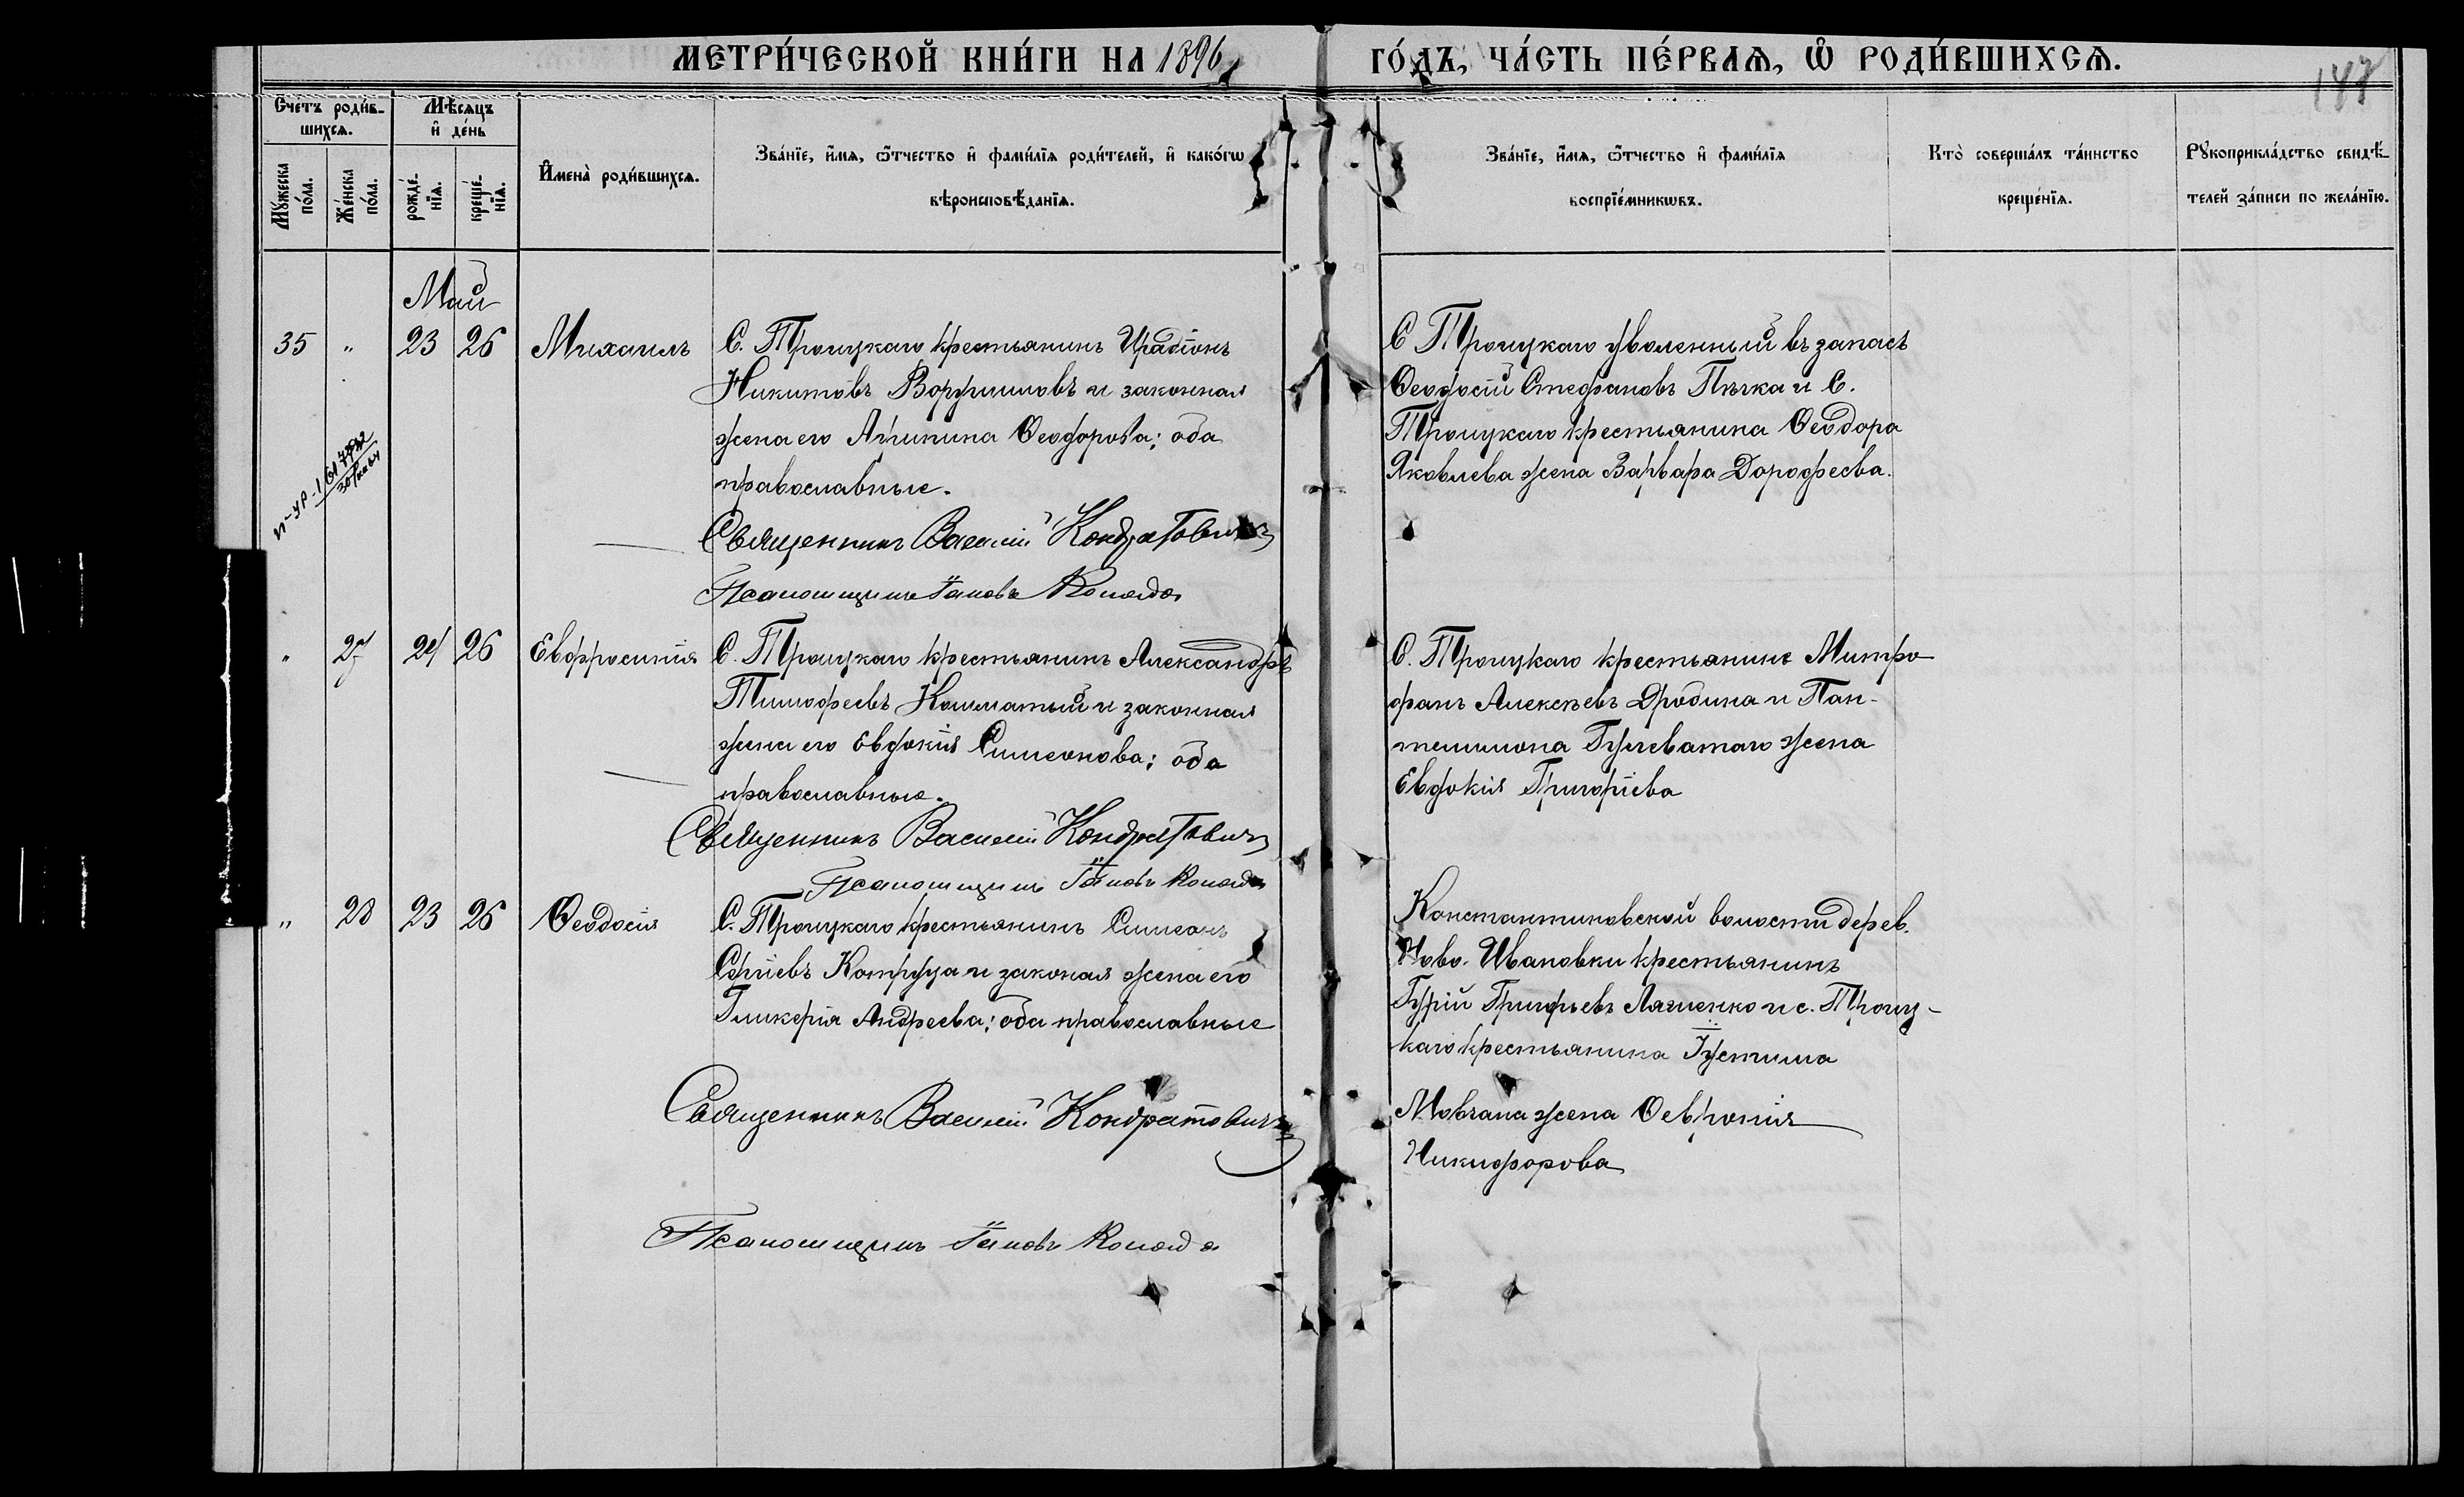 МЕТРИ́ЧЕСКОЙ КНИ́ГИ НА 1896
ГО́ДЪ, ЧА́СТЬ ПЕ́РВАЯ, Ѽ РОДИ́ВШИХСЯ.
Сче́тъ роди́в-
шихся.
Мѣ́сяцъ
и҆ де́нь
Мꙋ́жеска
по́ла.
Же́нска
по́ла.
рожде́-
нїя.
креще́-
нїя.
И҆мена̀ роди́вшихся.
Зва́нїе, и҆́мя, ѻ҆́тчество и҆ фами́лїя роди́телей, и҆ како́гѡ
вѣроисповѣ́данїя.
Зва́нїе, и҆́мя, ѻ҆́тчество и҆ фами́лїя
воспрїе́мникѡвъ.
Кто̀ соверша́лъ та́инство
креще́нїя.
Рꙋкоприкла́дство свидѣ́-
телей за́писи по жела́нїю.
Май
35 " 23 26 Михаилъ
С. Троицкаго крестьянинъ
Никитовъ и законная
жена его Ѳеодорова; оба
православные.
Священникъ Василій Кондратовичъ
Псаломщикъ Іаковъ
С Троицкаго уволенный въ запасъ
Ѳеодосій Стефановъ и С.
Троицкаго крестьянина Ѳеодора
Яковлева жена Варвара Дорофеева.
" 27 24 26 Евфросинія
С. Троицкаго крестьянинъ Александръ
Тимофеевъ и законная
жена его Евдокія Симеонова; оба
православные.
Священникъ Василій Кондратовичъ
Псаломщикъ Іаковъ
С. Троицкаго крестьянине Митро-
фанъ Алексѣевъ Дробина и Пан-
телимона жена
Евдокія Григоріева
" 28 23 26 Ѳеодосія
С. Троицкаго крестьянинъ Симеонъ
Сергіевъ и законая жена его
Гликерія Андреева; оба православные
Священникъ Василій Кондратовичъ
Псаломщикъ Іаковъ
Константиновской волости дерев.
Ново-Ивановки крестьянинъ
Гурій Григорьевъ Ляшенко и с. Троиц-
каго крестьянина Іустима
Мовчана жена Ѳевронія
Никифорова